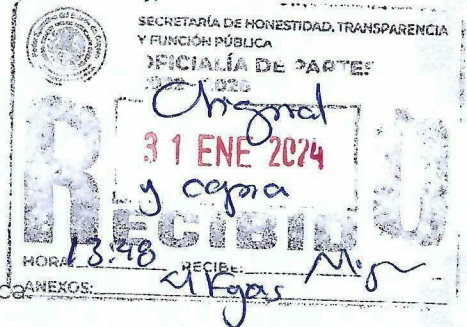 SECRETARÍA DE HONESTIDAD, TRANSPARENCIA
Y FUNCIÓN PÚBLICA
OFICIALÍA DE PARTES
Original
31 ENE 2024
y copia
RECIBIDO
HORA: 13:48 RECIBE:
ANEXOS:
ca